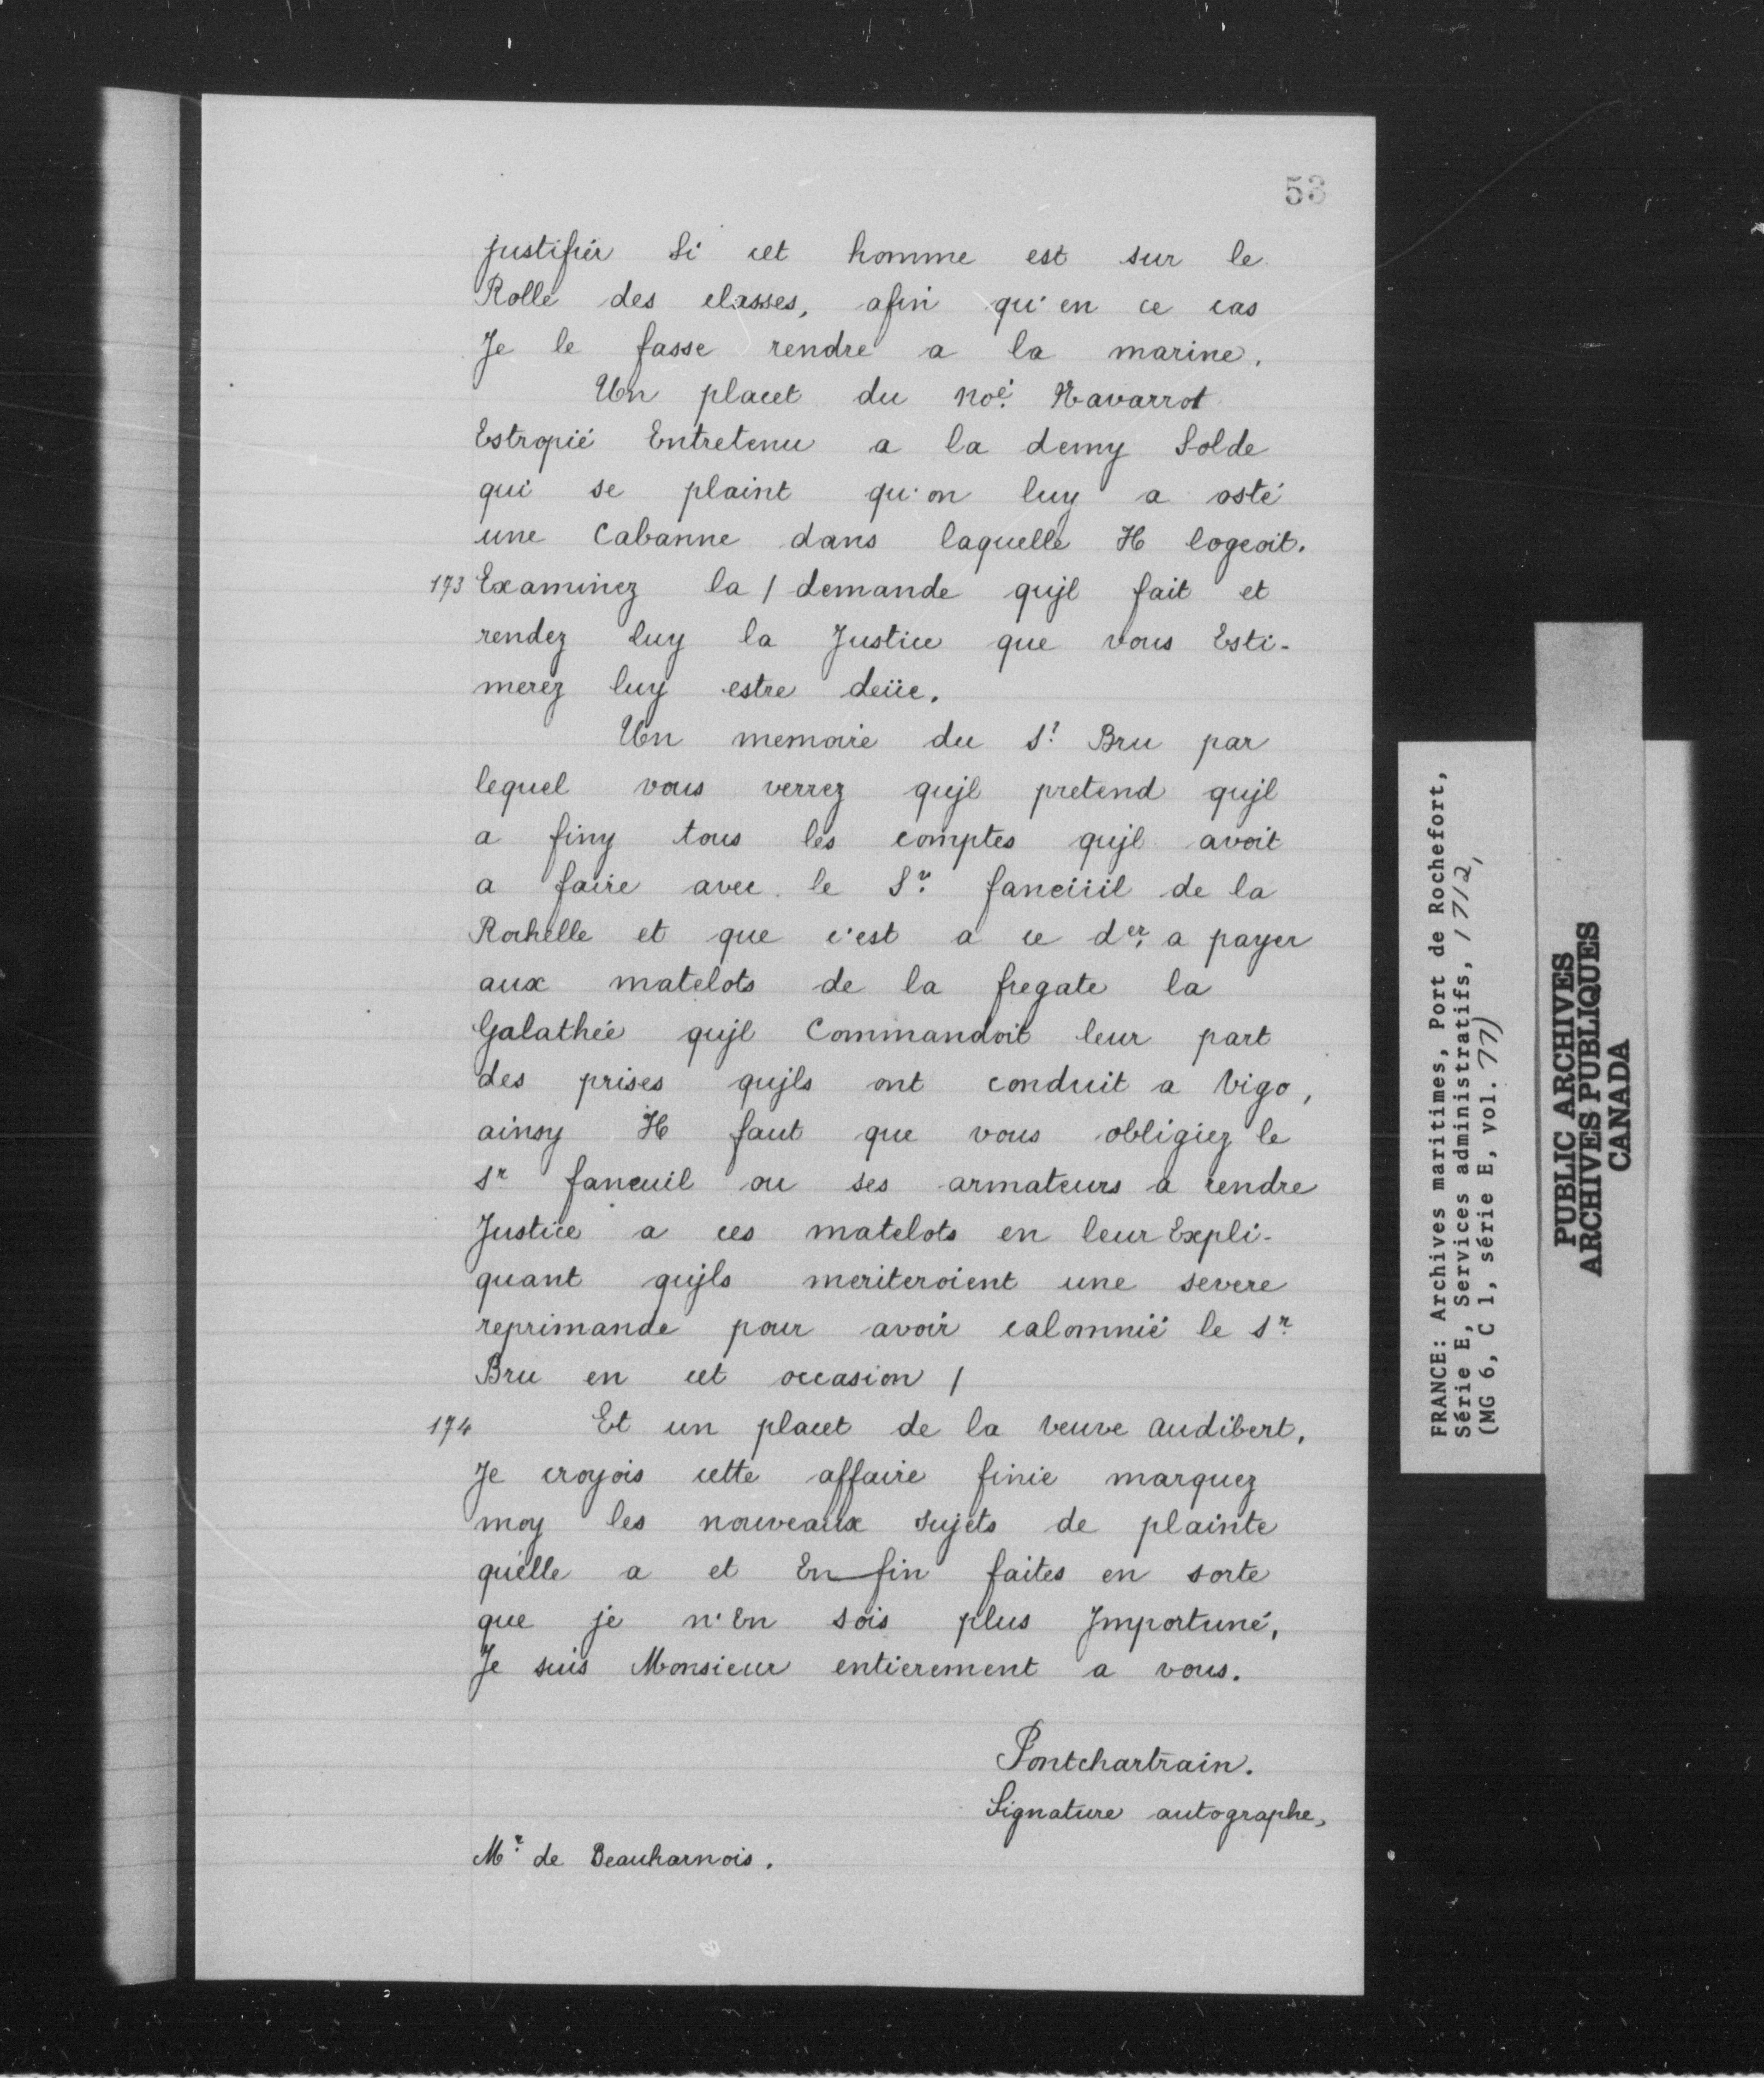 53
justifier Si cet homme est sur le
Rolle des classes, afin qu'en ce cas
Je le fasse rendre a la marine.
Un placet du noé. Navarrot
Estropié Entretenu a la demy Solde
qui se plaint qu'on luy a osté
une Cabanne dans laquelle Il logeoit.
173 Examinez la / demande qujl fait et
rendez luy la Justice que vous Esti-
merez luy estre deüe.
Un memoire du Sr. Bru par
lequel vous verrez qujl pretend qujl
a finy tous les comptes qujl avoit
a faire avec le Sr. faneüil de la
Rochelle et que c'est a ce der. a payer
aux matelots de la fregate la
Galathée qujl Commandoit leur part
des prises qujls ont conduit a Vigo,
ainsy Il faut que vous obligiez le
Sr faneuil ou ses armateurs a rendre
Justice a ces matelots en leur Expli-
quant qujls meriteroient une severe
reprimande pour avoir calomnié le Sr.
Bru en cet occasion /
174 Et un placet de la veuve Audibert,
Je croyois cette affaire finie marquez
moy les nouveaux sujets de plainte
qu'elle a et En fin faites en sorte
que je n'En sois plus Importuné,
Je suis Monsieur entierement a vous.
Pontchartrain.
Signature autographe,
Mr. de Beauharnois.
FRANCE: Archives maritimes, Port de Rochefort,
Série E, Services administratifs, 1712,
(MG 6, C 1, série E, vol. 77)
PUBLIC ARCHIVES
ARCHIVES PUBLIQUES
CANADA